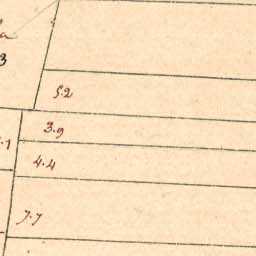 3
5.2
3.9
.1
4.4
7.7